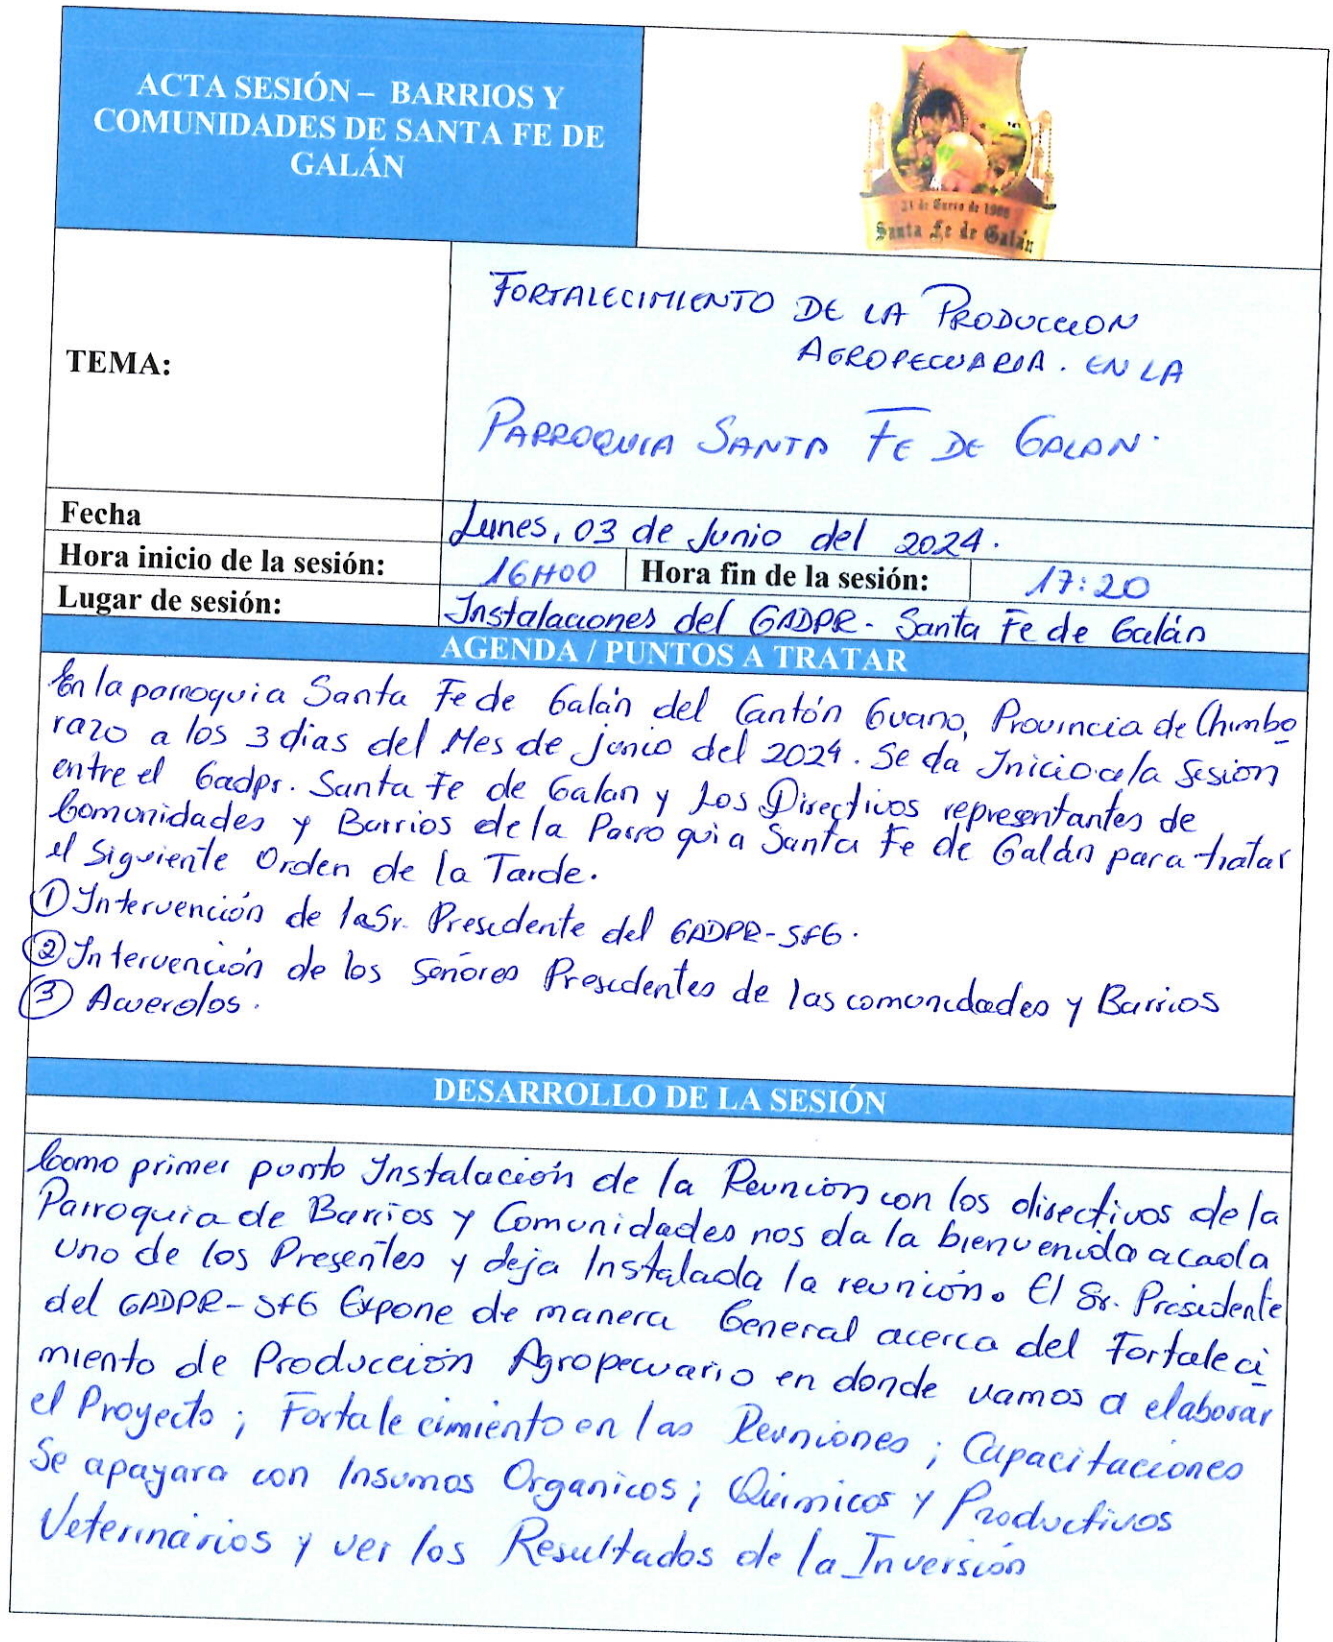 ACTA SESIÓN – BARRIOS Y
COMUNIDADES DE SANTA FE DE
GALÁN
Santa Fe de Galán
TEMA:
FORTALECIMIENTO DE LA PRODUCCION
AGROPECUARIA. EN LA
PARROQUIA SANTA FE DE GALAN.
Fecha
Lunes, 03 de Junio del 2024.
Hora inicio de la sesión: 16H00 Hora fin de la sesión: 17:20
Lugar de sesión: Instalaciones del GADPR- Santa Fe de Galán
AGENDA / PUNTOS A TRATAR
En la parroquia Santa Fe de Galán del Cantón Guano, Provincia de Chimbo
razo a los 3 dias del Mes de junio del 2024. Se da Inicio a la Sesion
entre el Gadpr. Santa Fe de Galan y Los Directivos representantes de
Comunidades y Barrios de la Parroquia Santa Fe de Galán para tratar
el Siguiente Orden de la Tarde.
① Intervención de la Sr. Presidente del GADPR-SFG.
② Intervención de los Señores Presidentes de las comunidades y Barrios
③ Acuerdos.
DESARROLLO DE LA SESIÓN
Como primer punto Instalación de la Reunion con los directivos de la
Parroquia de Barrios y Comunidades nos da la bienvenida a cada
uno de los Presentes y deja Instalada la reunión. El Sr. Presidente
del GADPR-SFG Expone de manera General acerca del Fortaleci
miento de Producción Agropecuario en donde vamos a elaborar
el Proyecto; Fortalecimiento en las Reuniones; Capacitaciones
Se apayara con Insumos Organicos; Químicos y Productivos
Veterinários y ver los Resultados de la Inversión